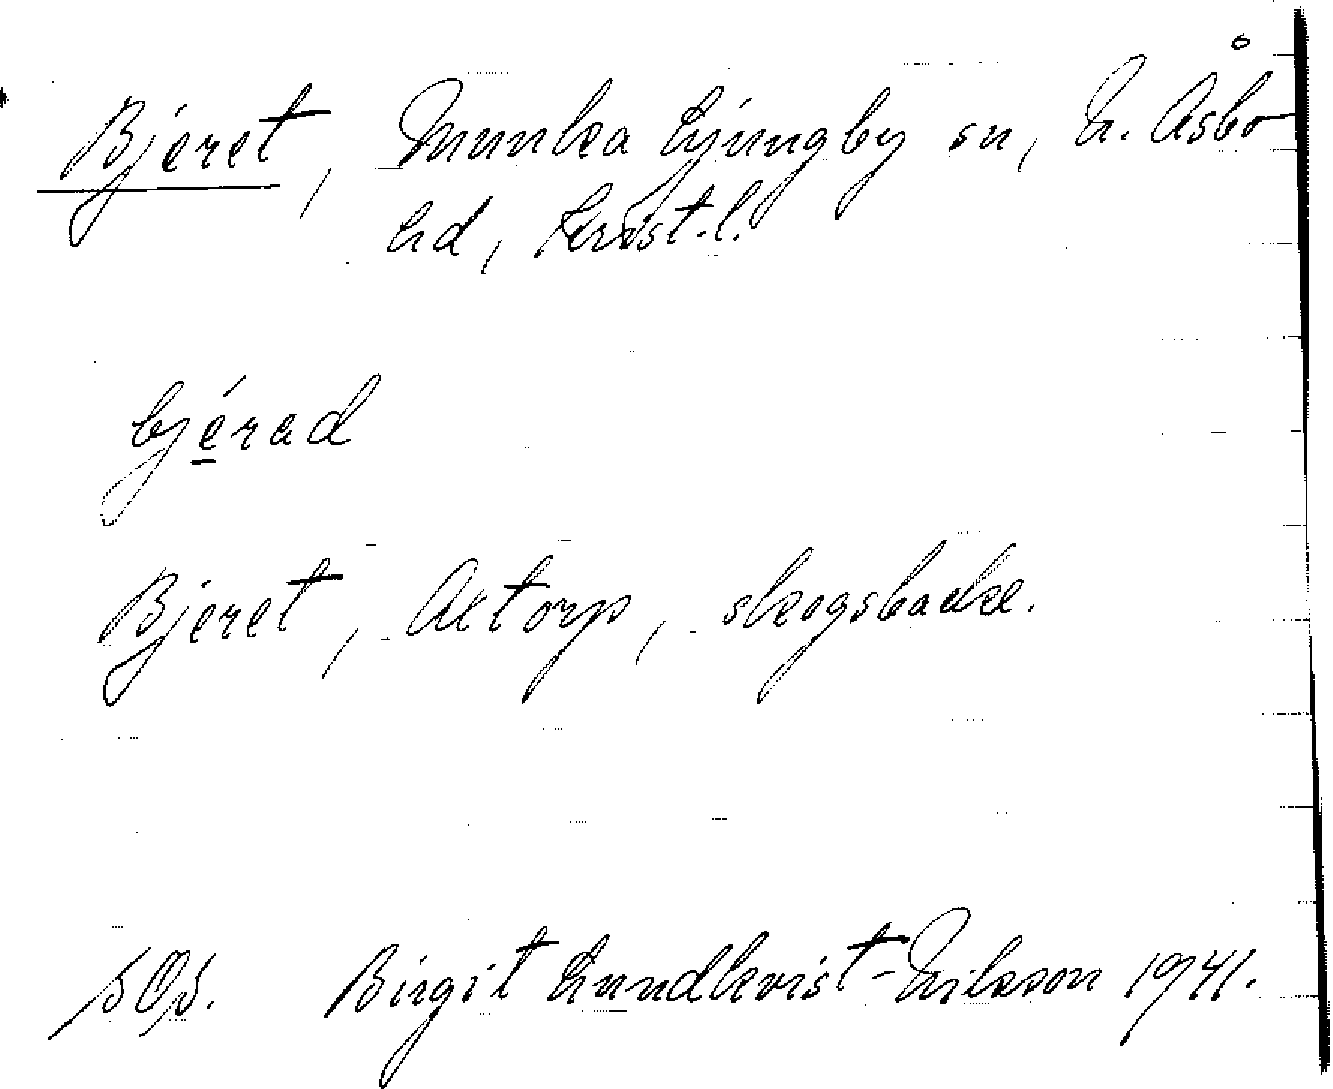 Bjeret, Munka Ljungby sn, N. Åsbo
hd, Krist. l.
bjérad
Bjeret, Altorp, skogsbacke.
SOS. Birgit Lundkvist-Nilsson 1941.